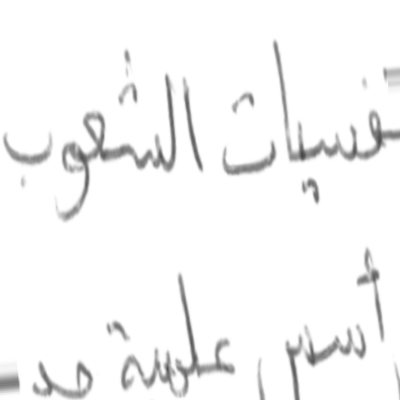 نفسيات الشعوب
أسس علمية